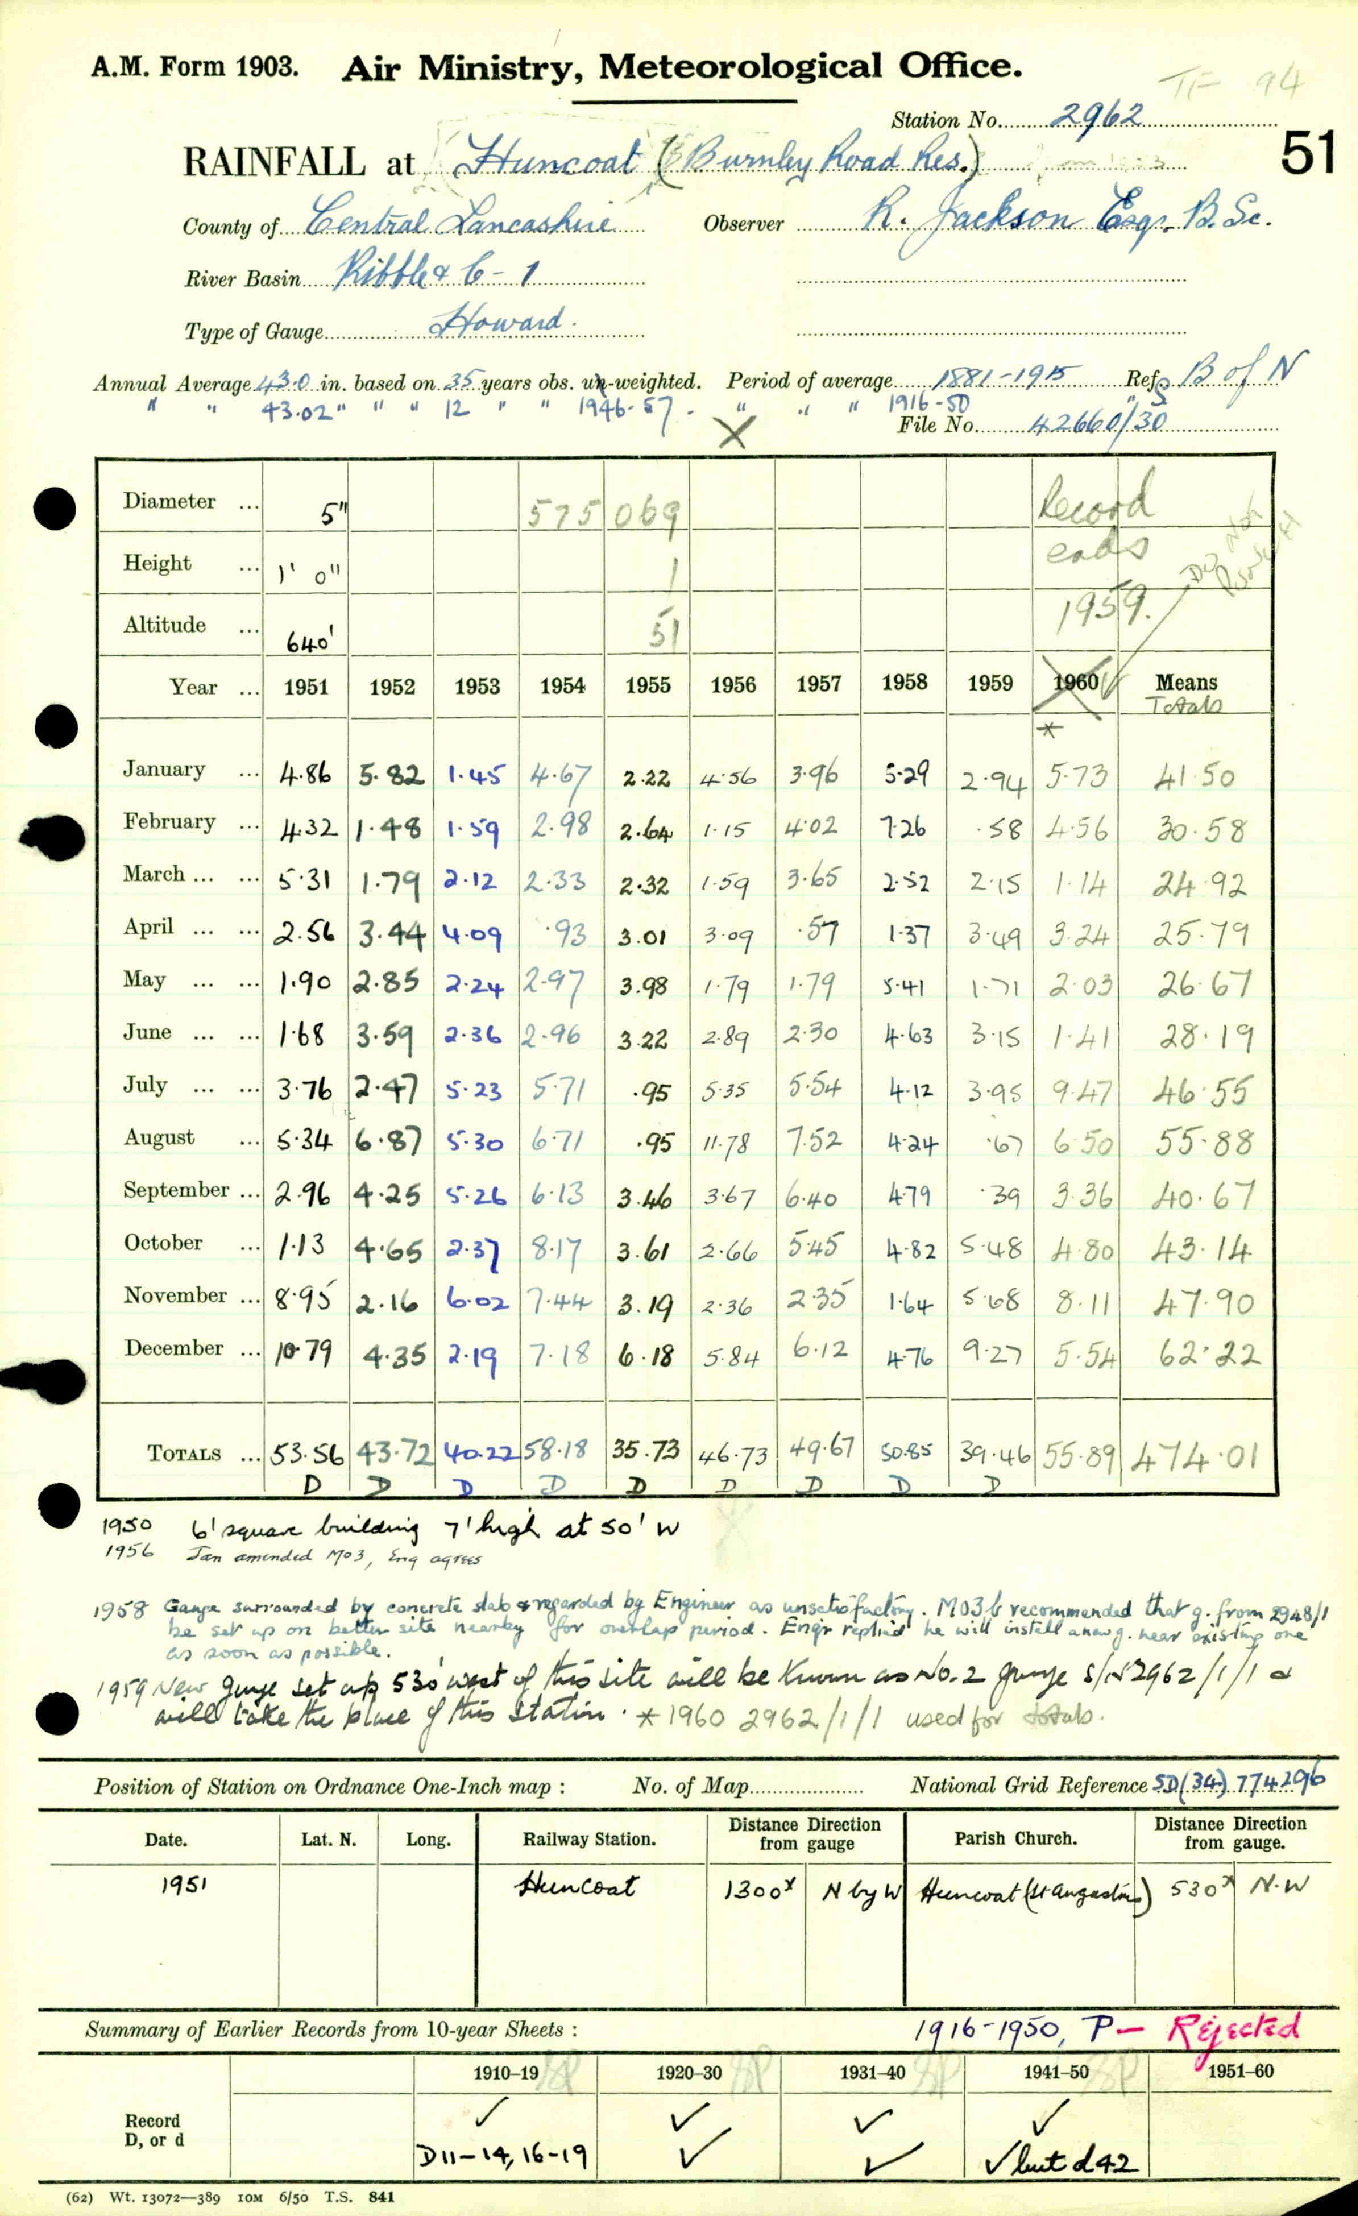 A.M. Form 1903. Air Ministry, Meteorological Office.
TF 94
Station No. 2962
51
RAINFALL at Huncoat (Burnley Road Res.)
County of Central Lancashire Observer R. Jackson Esqr. B.Sc.
River Basin Ribble & C-1
Type of Gauge Howard.
Annual Average 43.0 in. based on 35 years obs. un-weighted. Period of average 1881-1915 Refs B of N
" " 43.02 " " " 12 " " 1946-57 - " " " 1916-50
X
File No. 42660/30
Diameter ... 5" 575 069 Record
Height ... 1' 0" 1 ends
Altitude ... 640' 51 1959.
Year ... 1951 1952 1953 1954 1955 1956 1957 1958 1959 1960 Means
* Totals
January ... 4.86 5.82 1.45 4.67 2.22 4.56 3.96 5.29 2.94 5.73 41.50
February ... 4.32 1.48 1.59 2.98 2.64 1.15 4.02 7.26 .58 4.56 30.58
March ... ... 5.31 1.79 2.12 2.33 2.32 1.59 3.65 2.52 2.15 1.14 24.92
April ... ... 2.56 3.44 4.09 .93 3.01 3.09 .57 1.37 3.49 3.24 25.79
May ... ... 1.90 2.85 2.24 2.97 3.98 1.79 1.79 5.41 1.71 2.03 26.67
June ... ... 1.68 3.59 2.36 2.96 3.22 2.89 2.30 4.63 3.15 1.41 28.19
July ... ... 3.76 2.47 5.23 5.71 .95 5.35 5.54 4.12 3.95 9.47 46.55
August ... 5.34 6.87 5.30 6.71 .95 11.78 7.52 4.24 .67 6.50 55.88
September ... 2.96 4.25 5.26 6.13 3.46 3.67 6.40 4.79 .39 3.36 40.67
October ... 1.13 4.65 2.37 8.17 3.61 2.66 5.45 4.82 5.48 4.80 43.14
November ... 8.95 2.16 6.02 7.44 3.19 2.36 2.35 1.64 5.68 8.11 47.90
December ... 10.79 4.35 2.19 7.18 6.18 5.84 6.12 4.76 9.27 5.54 62.22
TOTALS ... 53.56 43.72 40.22 58.18 35.73 46.73 49.67 50.85 39.46 55.89 474.01
D D D D D D D D D
1950 6' square building 7' high at 50' W
1956 Jan amended MO3, Eng agrees
1958 Gauge surrounded by concrete slab & regarded by Engineer as unsatisfactory. MO3b recommended that g. from 2948/1
be set up on better site nearby for overlap period. Engr replied he will install a new g. near existing one
as soon as possible.
1959 New gauge set up 530' west of this site will be known as No. 2 gauge S/N 2962/1/1 &
will take the place of this station. * 1960 2962/1/1 used for totals.
Position of Station on Ordnance One-Inch map : No. of Map National Grid Reference SD(34) 774296
Date. Lat. N. Long. Railway Station. Distance Direction from gauge Parish Church. Distance Direction from gauge.
1951 Huncoat 1300x N by W Huncoat (St Augustines) 530x N.W
Summary of Earlier Records from 10-year Sheets : 1916-1950, P - Rejected
1910–19 1920–30 1931–40 1941–50 1951–60
Record ✓ ✓ ✓ ✓
D, or d D11-14, 16-19 ✓ ✓ ✓ but d42
(62) Wt. 13072—389 10M 6/50 T.S. 841